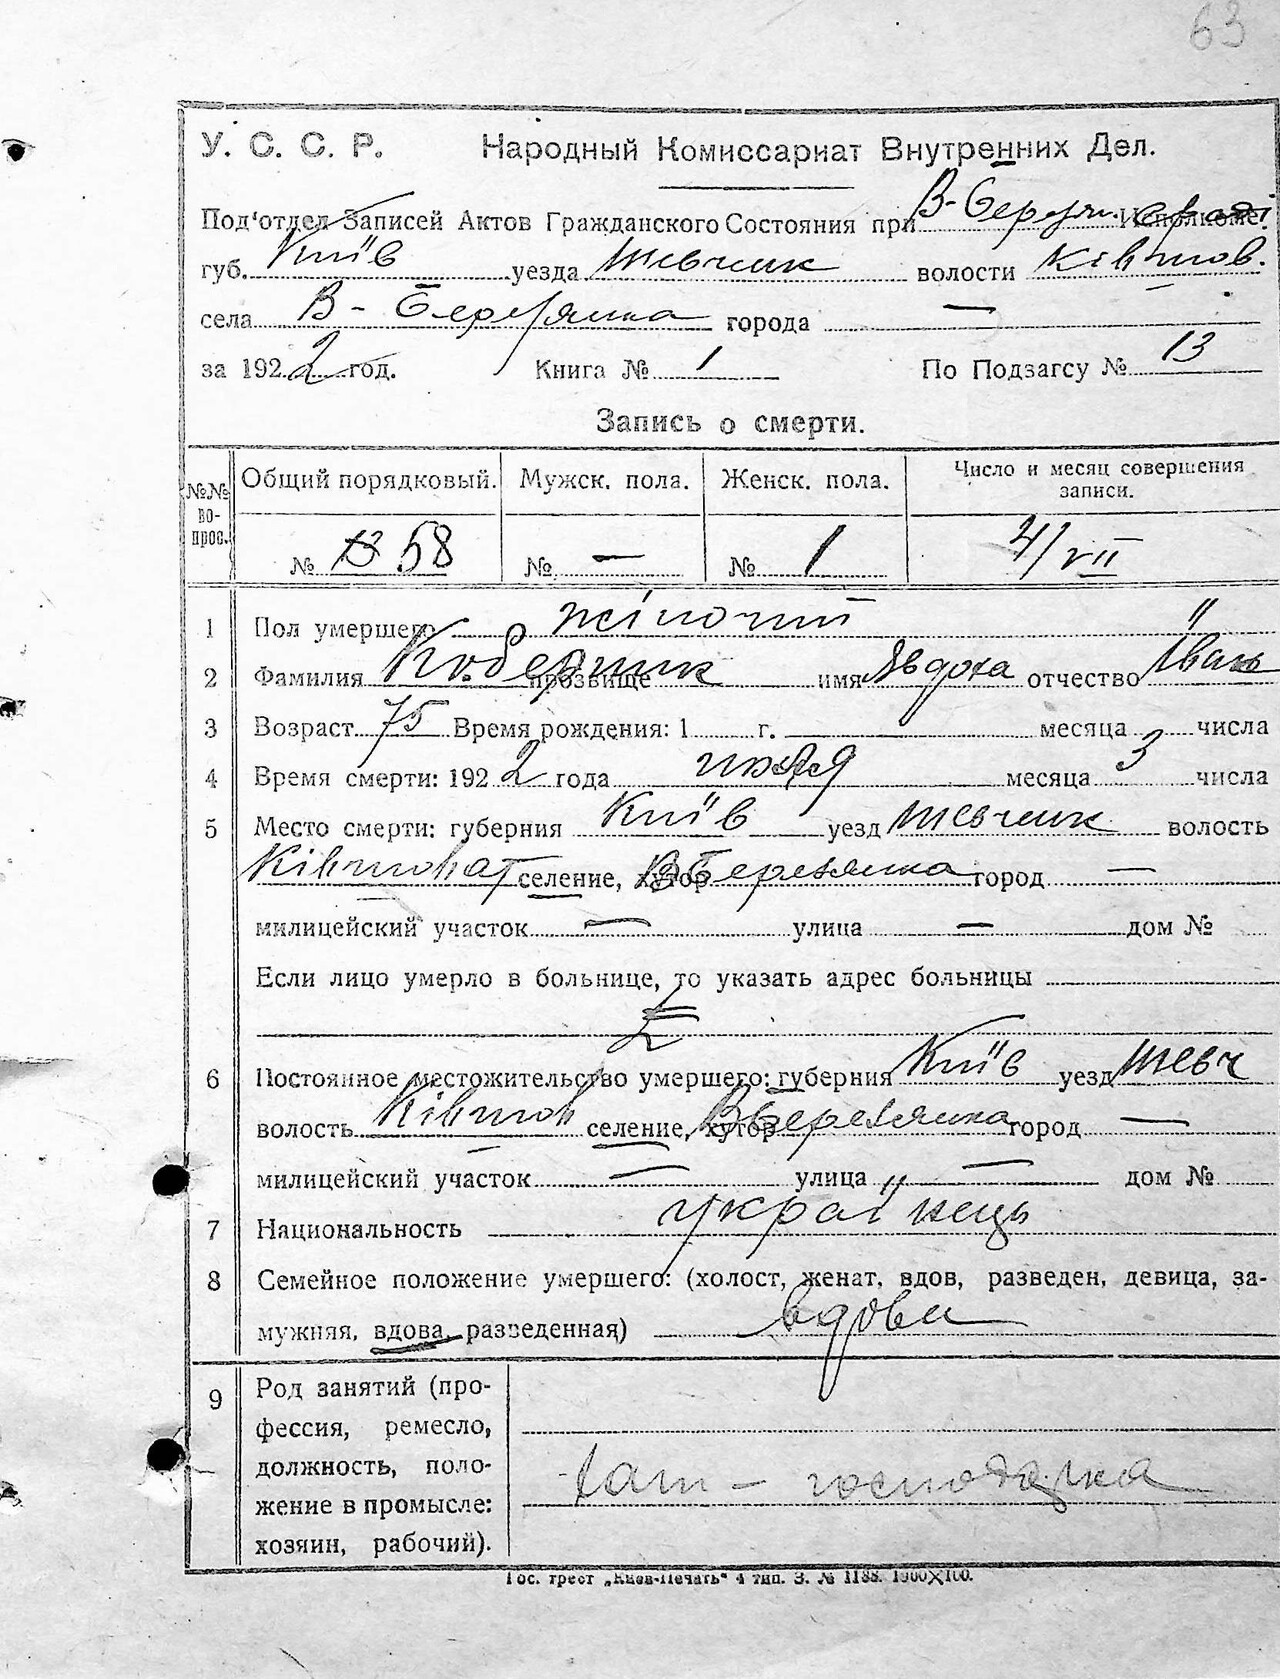 63
У. С. С. Р. Народный Комиссариат Внутренних Дел.
Под'отдел Записей Актов Гражданского Состояния при В-Березян. Исполкоме
губ. Київ уезда Шевченк волости Ківшов.
села В-Березянка города —
за 1922 год. Книга № 1 По Подзагсу № 13
Запись о смерти.
№№ вопрос. Общий порядковый. Мужск. пола. Женск. пола. Число и месяц совершения записи.
№ 58 № — № 1 4/VII
1 Пол умершего жіночий
2 Фамилия Коберник прозвище имя Явдоха отчество Іван
3 Возраст 75 Время рождения: 1 г. месяца числа
4 Время смерти: 1922 года июля месяца 3 числа
5 Место смерти: губерния Київ уезд Шевченк волость
Ківшоват селение, хутор В Березянка город —
милицейский участок — улица — дом №
Если лицо умерло в больнице, то указать адрес больницы
6 Постоянное местожительство умершего: губерния Київ уезд Шевч
волость Ківшов селение, хутор В Березянка город —
милицейский участок — улица — дом №
7 Национальность українець
8 Семейное положение умершего: (холост, женат, вдов, разведен, девица, за-
мужняя, вдова, разведенная) вдова
9 Род занятий (про-
фессия, ремесло,
должность, поло-
жение в промысле:
хозяин, рабочий).
господарка
Гос. трест „Киев-Печать" 4 тип. З. № 1188. 1900×100.